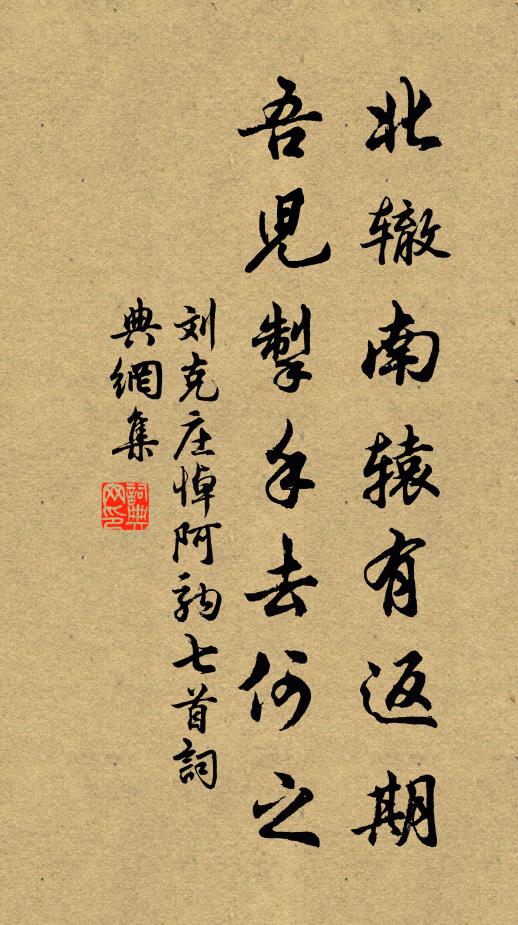 北辙南辕有返期
吾児掣手去何之
刘克庄悼阿驹七首詞
典網集
詞典网印